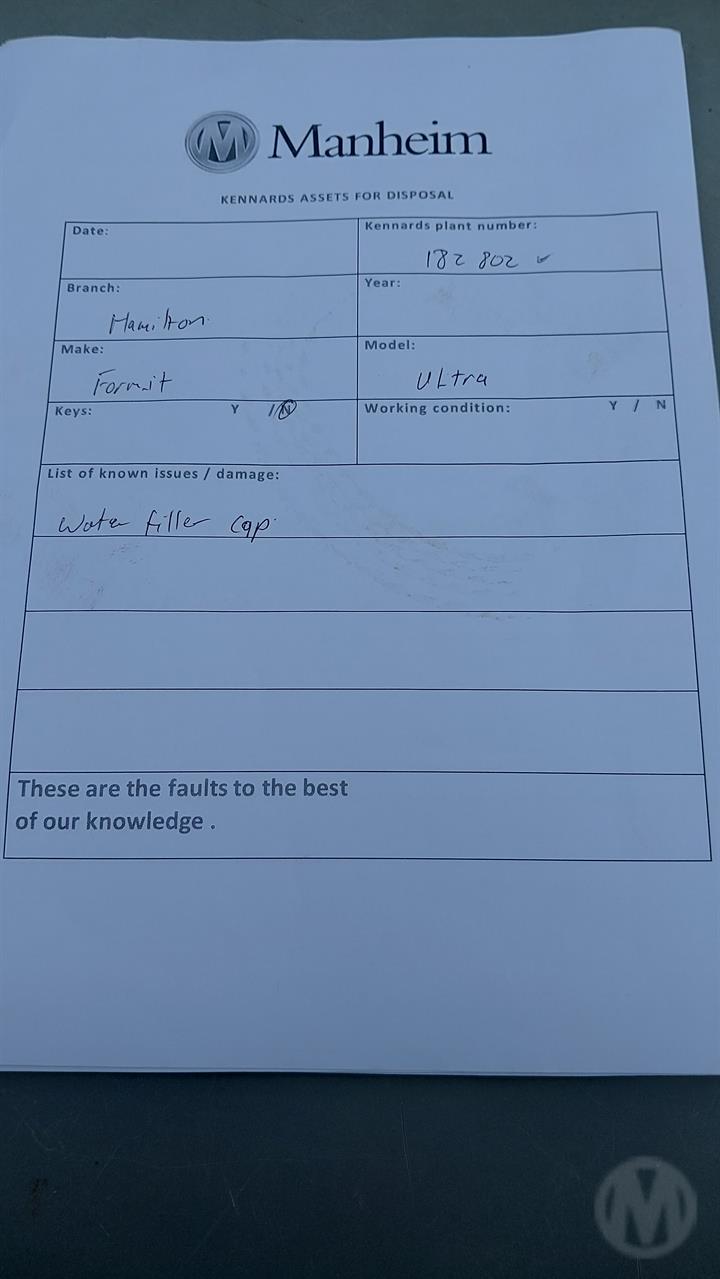 Manheim
KENNARDS ASSETS FOR DISPOSAL
Date:
Kennards plant number:
182 802 ✓
Branch:
Hamilton
Year:
Make:
Formit
Model:
ULtra
Keys: Y / N
Working condition: Y / N
List of known issues / damage:
Water filler cap
These are the faults to the best
of our knowledge .